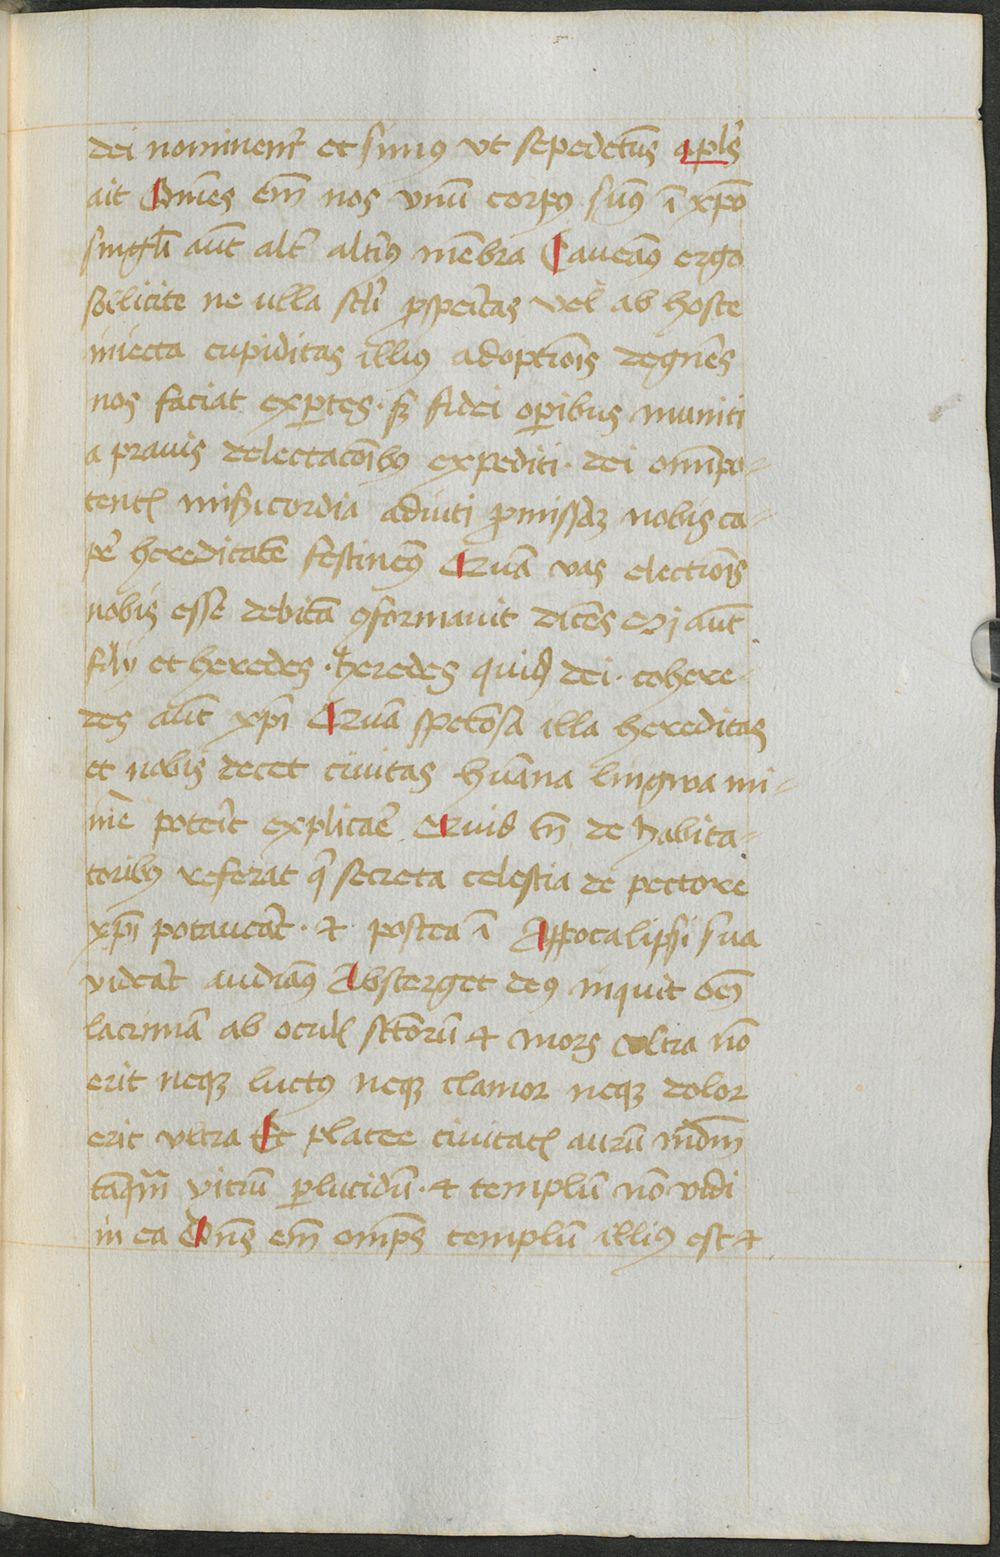 dei nominem᷑ et simꝰ vt sepedictūs apl̄s
ait Om̄es em̄ nos vnū corpꝰ sumꝰ ī xp̄o
singl̄i aūt alt̄ altiꝰ mēbra Caveamꝰ ergo
sollicite ne ulla sc̄li ꝓspitas vel ab hoste
iniecta cupiditas illiꝰ adoptiōis degn̄es
nos faciat exꝑtes · sꝫ fidei oꝑibus muniti
a prauis delectacōibꝰ expediti · dei om̄ipo-
tentꝭ mīsicordia adiuti ꝓmissaꝫ nobis ca-
pe᷑ hereditatē festinemꝰ Quā vas electiōis
nobis esse debitā ꝯformauit dicēs Si aūt
filij et heredes · heredes quid̄ dei · cohere-
des aūt xp̄i Quā spetiosā illa hereditas
et nobis decet ciuitas humana lingwa mi-
nīe poterit explicare Quid tn̄ de habita-
toribꝰ referat q̄ secreta celestia de pectore
xp̄i potauerat · ⁊ postea ī Appocalipsi sua
viderat audiamꝰ Absterget deꝰ inquit om̄ē
lacrimā ab oculꝭ sc̄torū ⁊ mors vltra nō
erit neqꝫ luctꝰ neqꝫ clamor neqꝫ dolor
erit vltra Et platee ciuitatꝭ aurū mūdm̄
tāqᷓm vitrū ꝑlucidū · ⁊ templū nō vidi
in ea Dn̄s em̄ omp̄s templū illiꝰ est ⁊